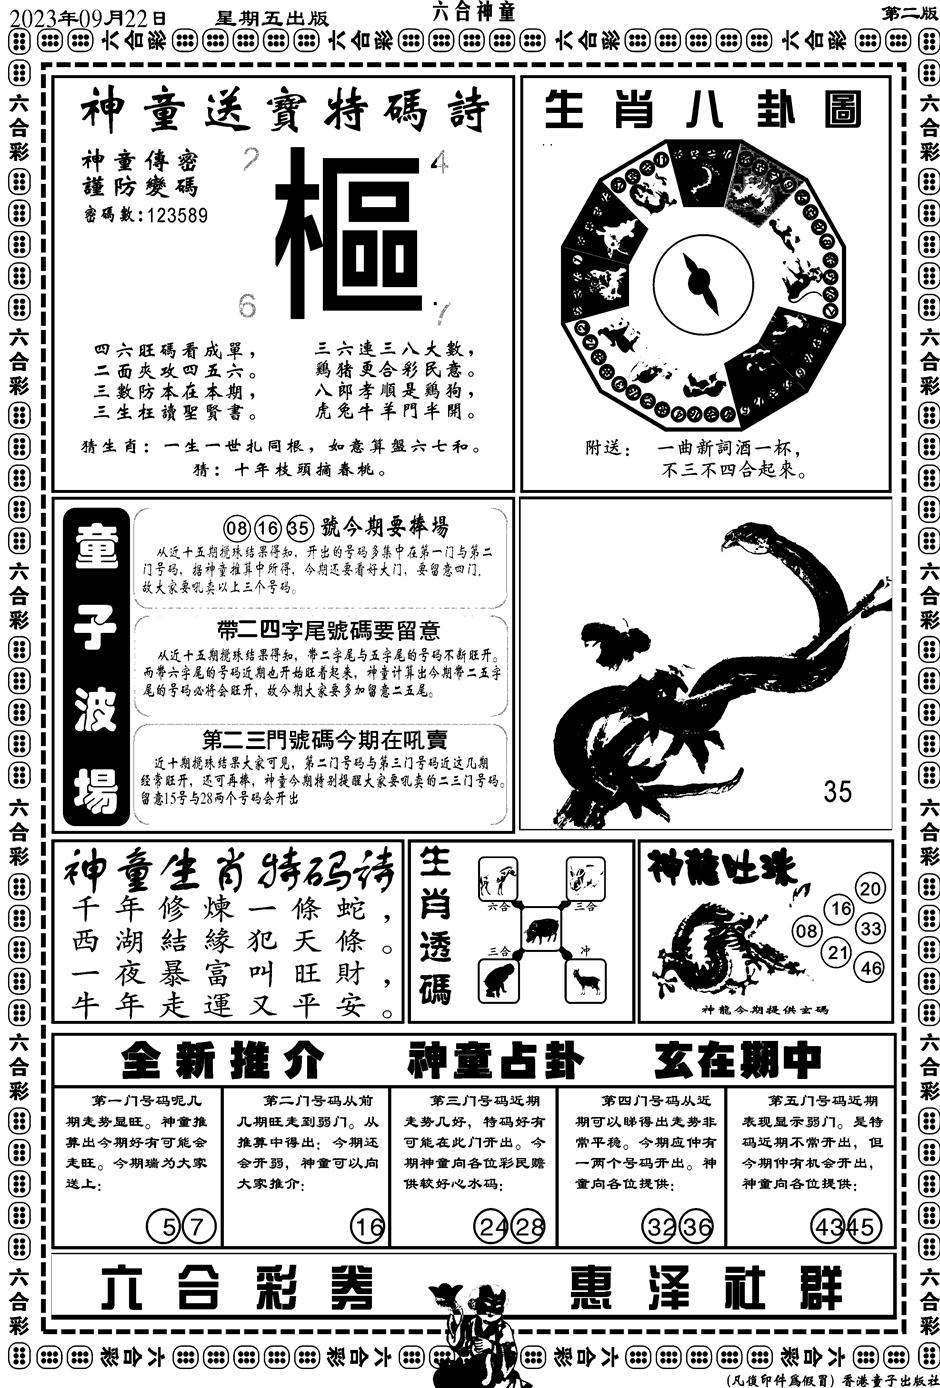 2023年09月22日
星期五出版
六合神童
第二版
神童送寶特碼詩
神童傳密
謹防變碼
密碼數:123589
2
4
樞
6
7
四六旺碼看成單，
二面夾攻四五六。
三數防本在本期，
三生枉讀聖賢書。
三六連三八大數，
鷄猪更合彩民意。
八郎孝順是鷄狗，
虎兔牛羊門半開。
猜生肖：一生一世扎同根，如意算盤六七和。
猜：十年枝頭摘春桃。
生肖八卦圖
附送：
一曲新詞酒一杯，
不三不四合起來。
童子波場
08 16 35 號今期要捧場
从近十五期搅珠结果得知，开出的号码多集中在第一门与第二
门号码，据神童推算中所得，今期还要看好大门，要留意四门.
故大家要吼卖以上三个号码。
帶二四字尾號碼要留意
从近十五期搅珠结果得知，带二字尾与五字尾的号码不断旺开。
而带六字尾的号码近期也开始旺着起来，神童计算出今期带二五字
尾的号码必将会旺开，故今期大家要多加留意二五尾。
第二三門號碼今期在吼賣
近十期搅珠结果大家可见，第二门号码与第三门号码近这几期
经常旺开，还可再捧，神童今期特别提醒大家要吼卖的二三门号码。
留意15号与28两个号码会开出
35
神童生肖特码诗
千年修煉一條蛇，
西湖結緣犯天條。
一夜暴富叫旺財，
牛年走運又平安。
生肖透碼
六合
三合
三合
冲
神龍吐珠
20
16
08
33
21
46
神龍今期提供玄碼
全新推介
神童占卦
玄在期中
第一门号码呢几
期走势显旺。神童推
算出今期好有可能会
走旺。今期瑞为大家
送上：
5 7
第二门号码从前
几期旺走到弱门。从
推算中得出：今期还
会开弱，神童可以向
大家推介：
16
第三门号码近期
走势几好，特码好有
可能在此门开出。今
期神童向各位彩民赡
供较好心水码：
24 28
第四门号码从近
期可以睇得出走势非
常平稳。今期应仲有
一两个号码开出。神
童向各位提供：
32 36
第五门号码近期
表现显示弱门。是特
码近期不常开出，但
今期仲有机会开出，
神童向各位提供：
43 45
六合彩券
惠泽社群
(凡復印件爲假冒)香港童子出版社